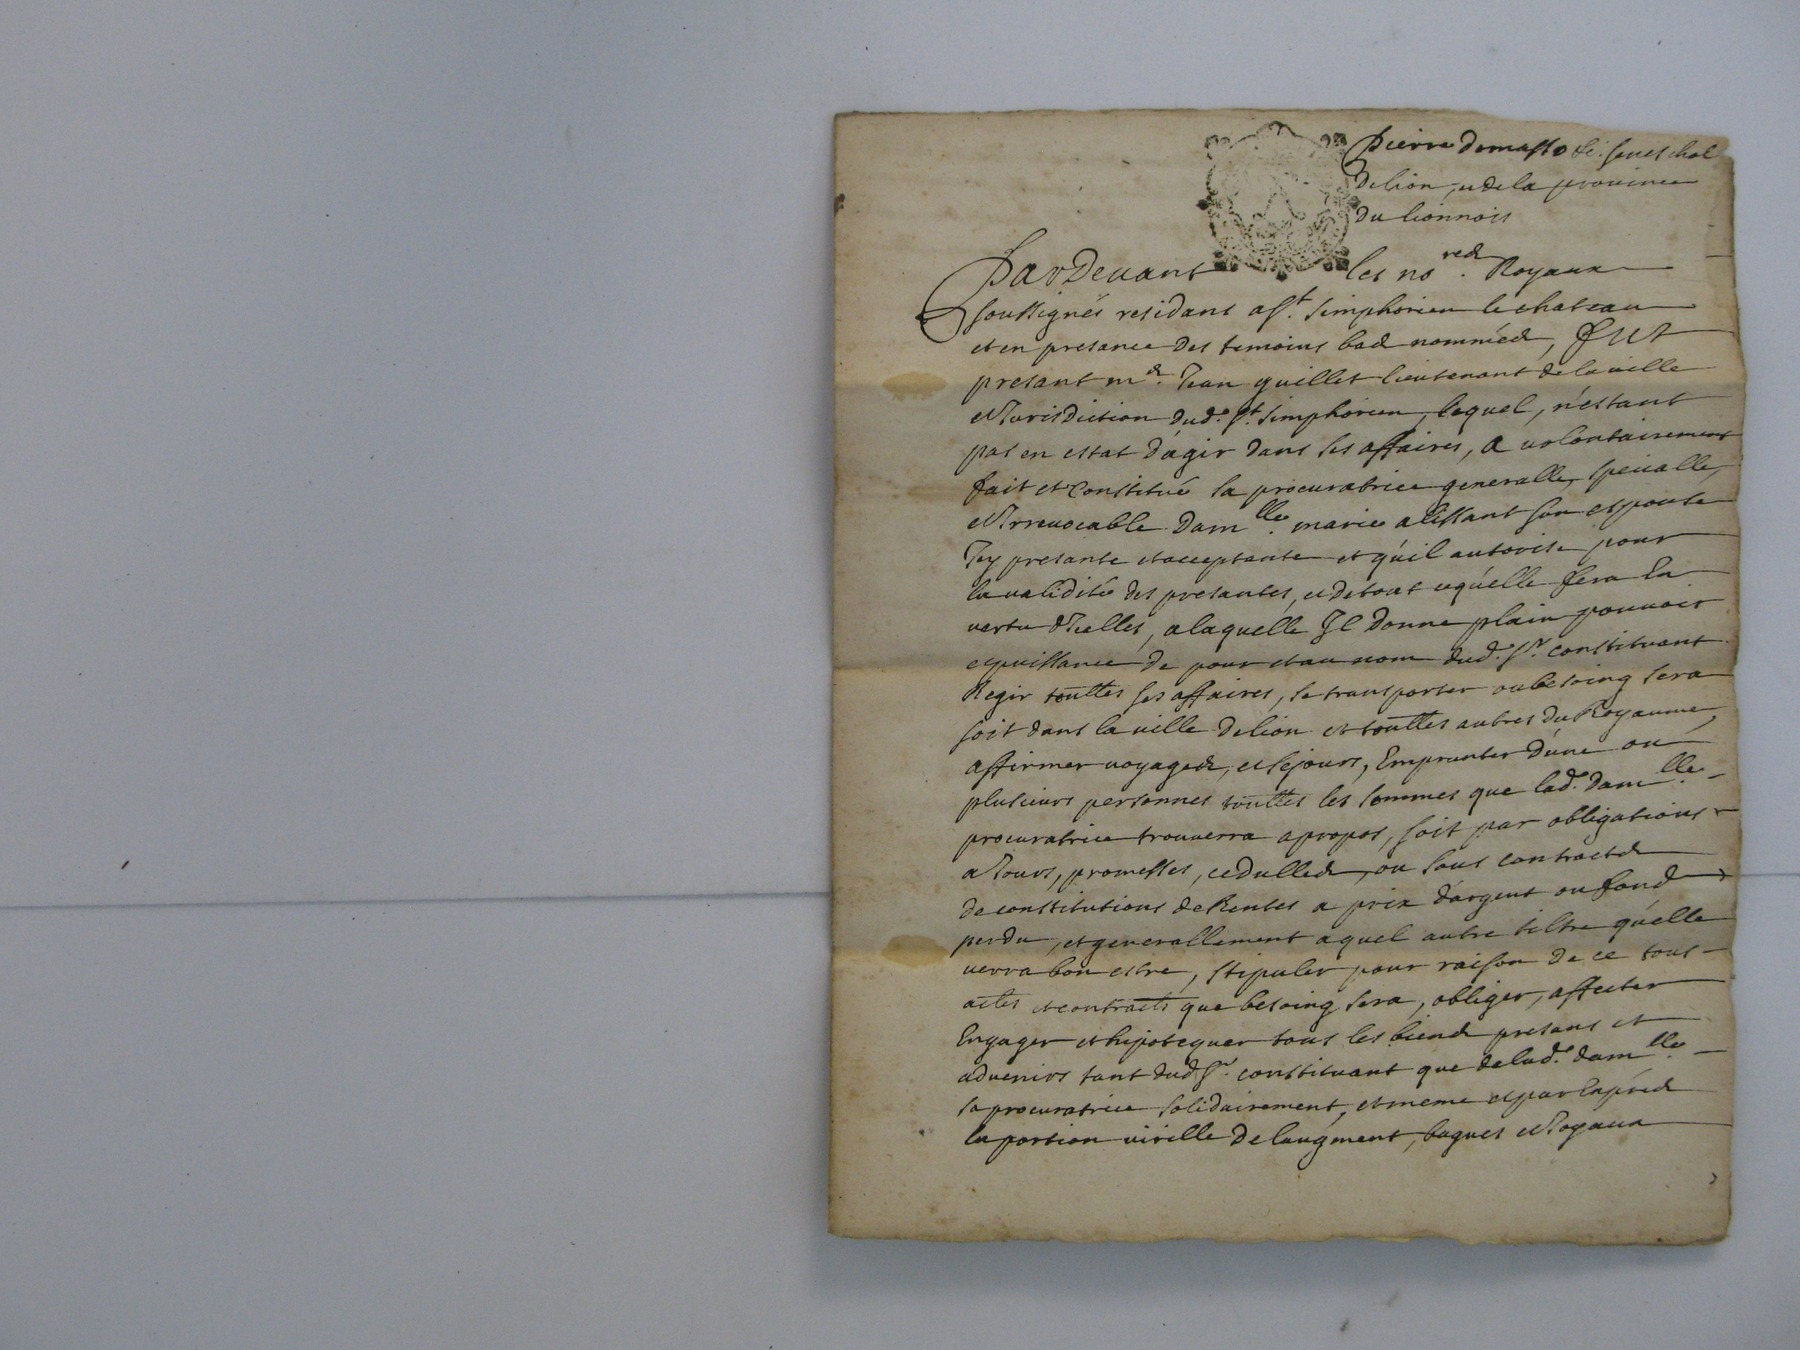 Pierre demasso se. seneschal
de lion, et de la province
du lionnois
Pardevant les no.red Royaux
soussignés residans a st. simphorien le chateau
et en presance des temoins bas nommés, FUT
presant mr. Jean guillet lieutenant de la ville
et Jurisdiction dud. st. simphorien, lequel, n'estant
pas en estat d'agir dans ses affaires, a volontairement
fait et constitué sa procuratrice generalle, specialle,
et Irrevocable dam.lle marie alissant son espouse
Icy presante et acceptante et qu'il autorise pour
la validité des presantes, et de tout ce qu'elle fera En
vertu d'Icelles, a laquelle Il donne plain pouvoir
et puissance de pour et au nom dud. sr. constituant
Regir touttes ses affaires, se transporter ou besoing sera
soit dans la ville de lion et touttes autres du Royaume,
affirmer voyages, et sejours, Emprunter d'une ou
plusieurs personnes touttes les sommes que lad. dam.lle
procuratrice trouverra a propos, soit par obligations
a Jours, promesses, cedulles, ou sous contracts
de constitutions de Rentes a prix d'argent ou fond
perdu, et generallement a quel autre tiltre qu'elle
verra bon estre, stipuler pour raison de ce tous
actes et contracts que besoing sera, obliger, affecter
Engager et hipotequer tous les biens presans et
advenirs tant dud. sr. constituant que de lad. dam.lle
sa procuratrice solidairement, et meme et par Exprés
la portion virille de l'augment, bagues et Joyaux